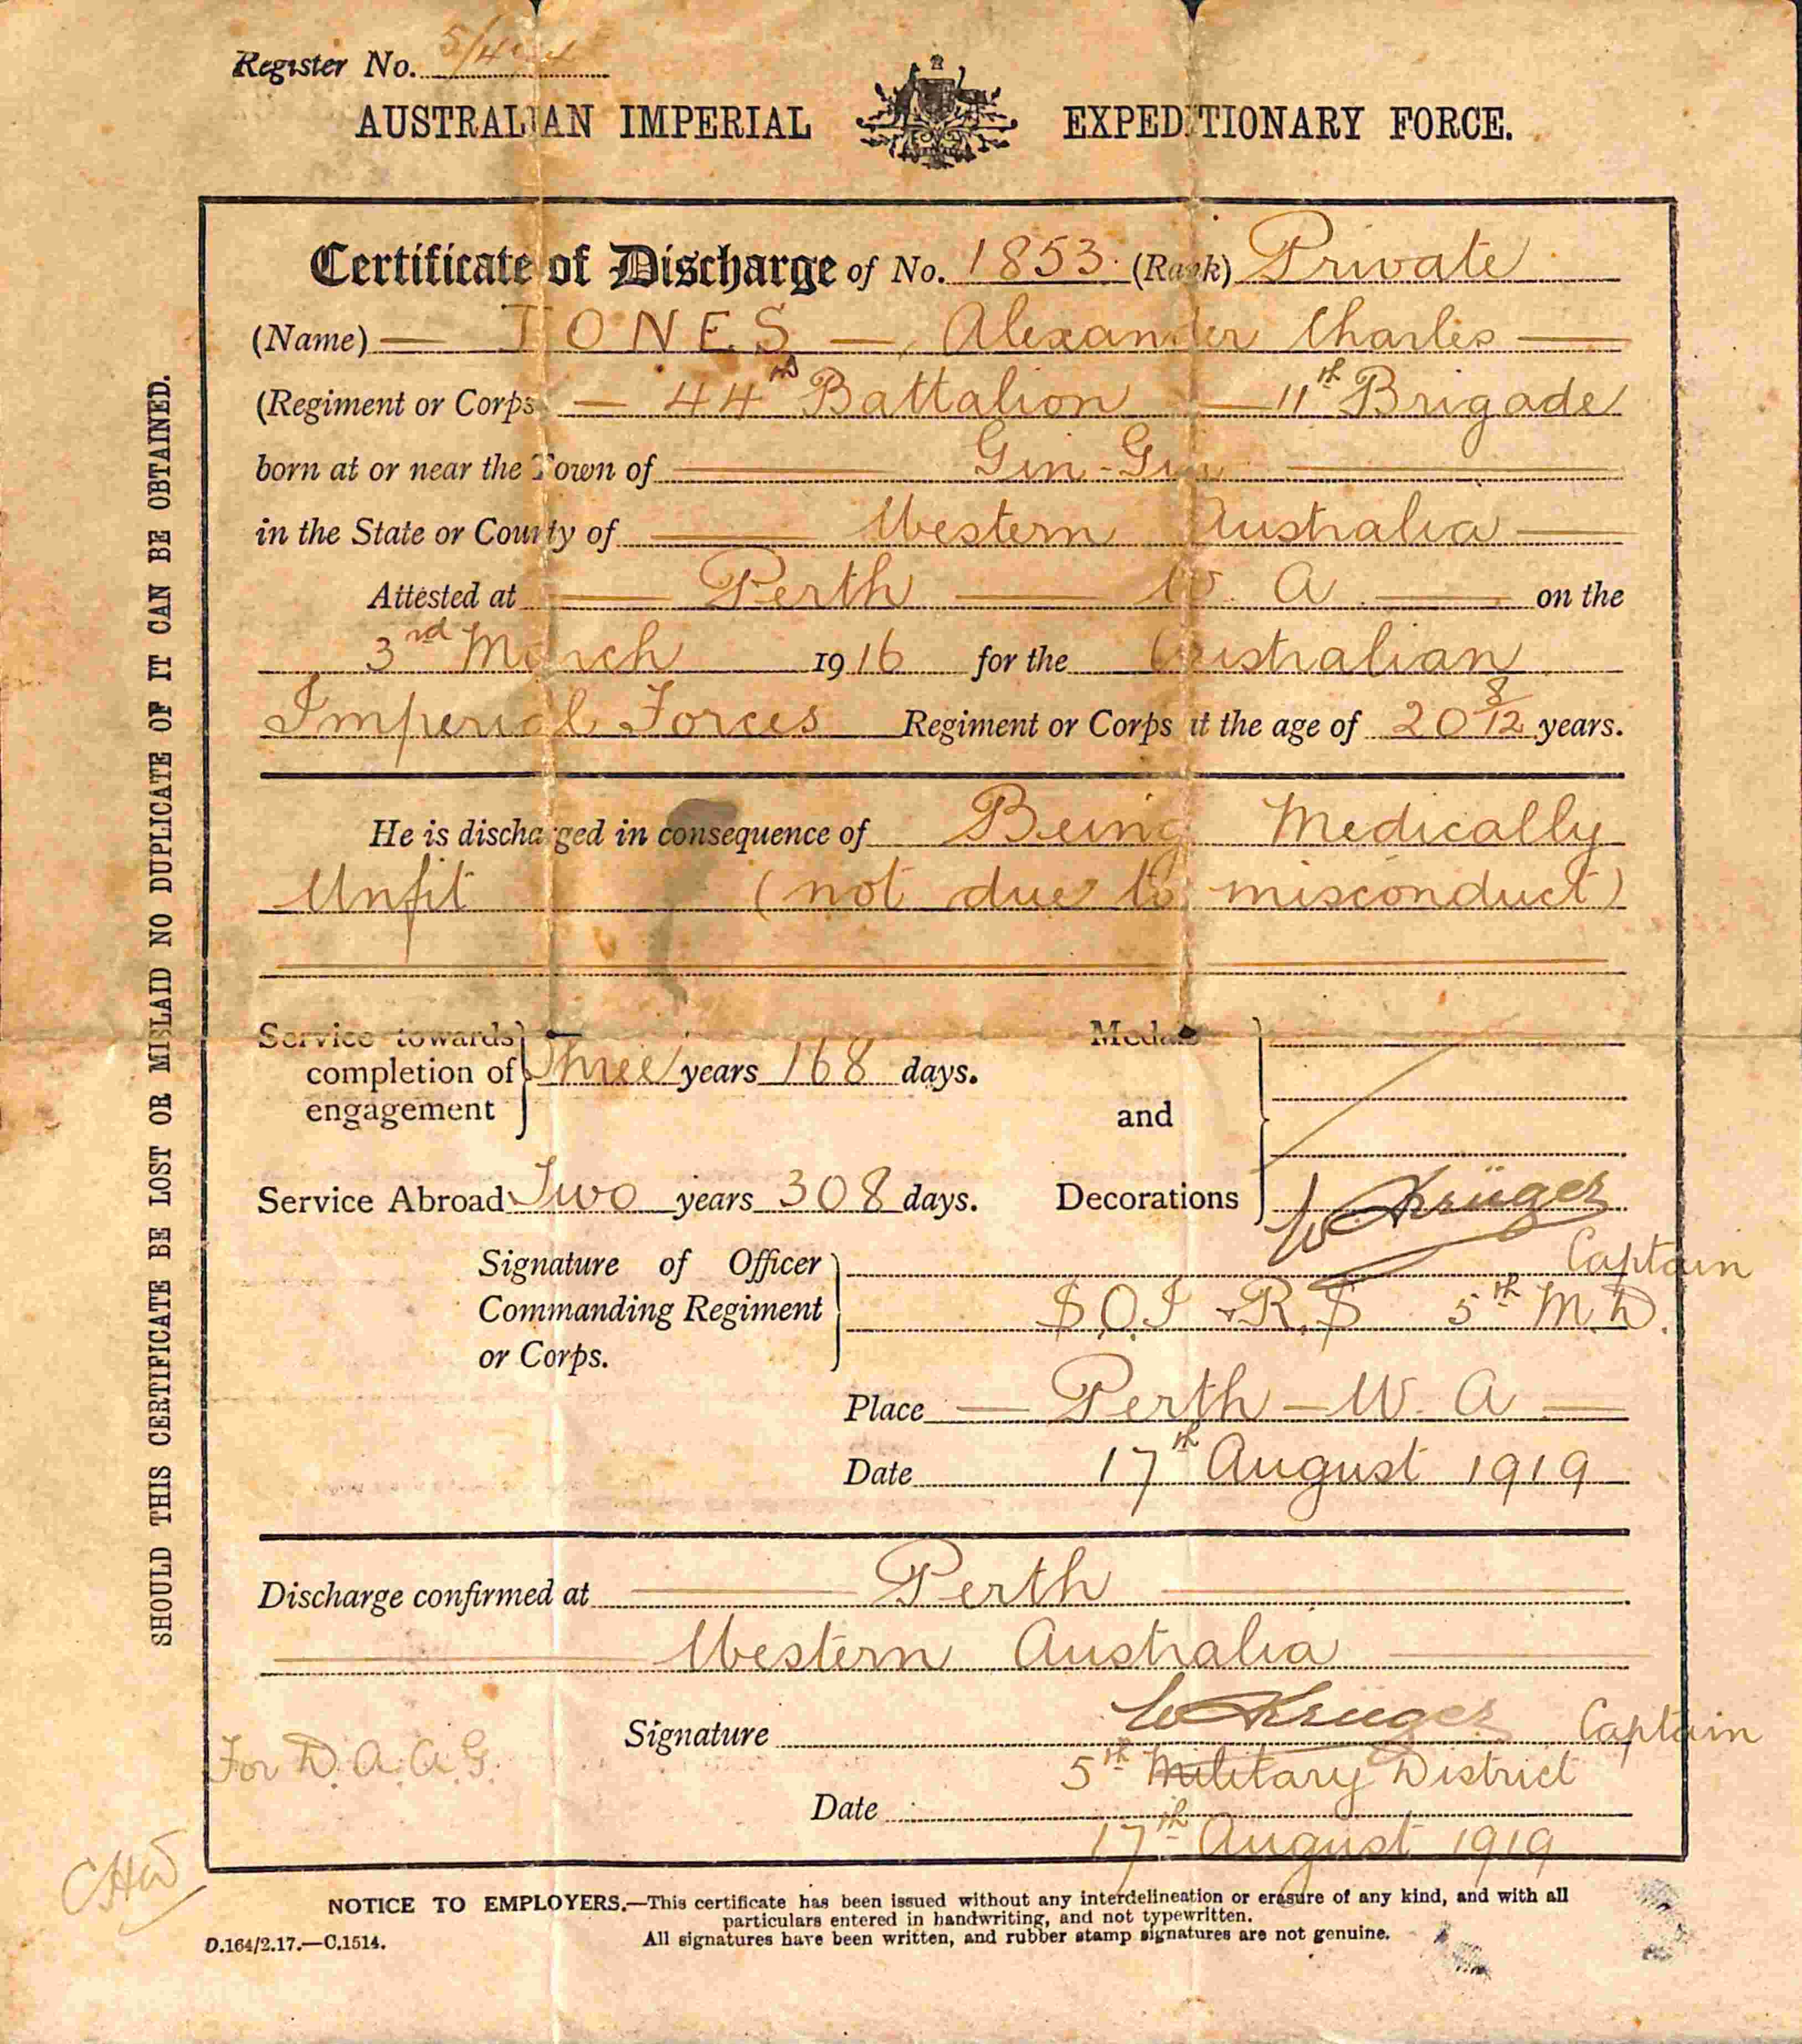 Register No.
AUSTRALIAN IMPERIAL EXPEDITIONARY FORCE.
Certificate of Discharge of No. 1853. (Rank) Private
(Name) — JONES —, Alexander Charles —
(Regiment or Corps — 44th Battalion — 11th Brigade
born at or near the Town of Gin-Gin
in the State or County of Western Australia —
Attested at — Perth — W. A. — on the
3rd March 1916 for the Australian
Imperial Forces Regiment or Corps at the age of 20 8/12 years.
He is discharged in consequence of Being Medically
Unfit (not due to misconduct)
Service towards completion of engagement } Three years 168 days.
Medals and Decorations }
Service Abroad Two years 308 days.
W Krüger
Signature of Officer Commanding Regiment or Corps. } Captain
S.O.I & R.S 5th M.D.
Place — Perth — W. A —
Date 17th August 1919
Discharge confirmed at — Perth —
Western Australia
Signature W Krüger Captain
For D.A.A.G. 5th Military District
Date 17th August 1919
CHW
NOTICE TO EMPLOYERS.—This certificate has been issued without any interdelineation or erasure of any kind, and with all
particulars entered in handwriting, and not typewritten.
D.164/2.17.—C.1514. All signatures have been written, and rubber stamp signatures are not genuine.
SHOULD THIS CERTIFICATE BE LOST OR MISLAID NO DUPLICATE OF IT CAN BE OBTAINED.